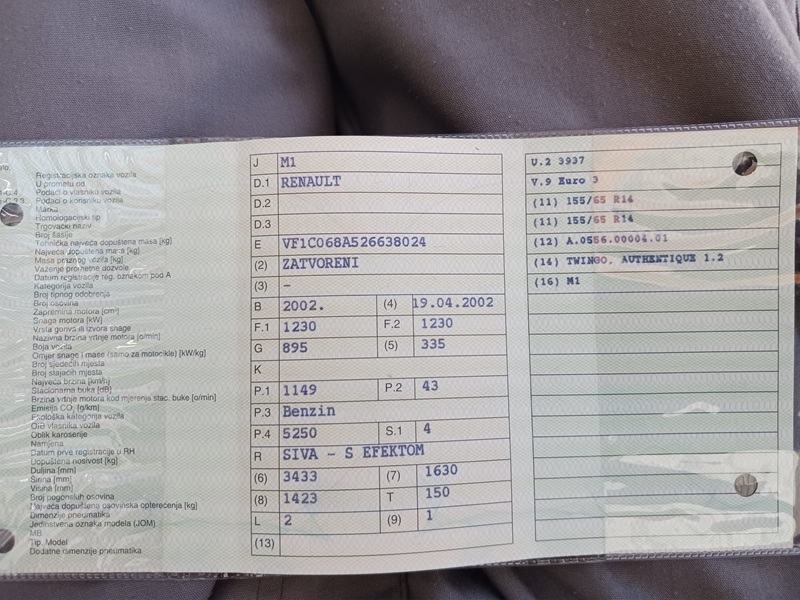 Registracijska oznaka vozila
U prometu od
Podaci o vlasniku vozila
Podaci o korisniku vozila
Marka
Homologacijski tip
Trgovački naziv
Broj šasije
Tehnička najveća dopuštena masa [kg]
Najveća dopuštena masa [kg]
Masa praznog vozila [kg]
Važenje prometne dozvole
Datum registracije reg. oznakom pod A
Kategorija vozila
Broj tipnog odobrenja
Broj osovina
Zapremina motora [cm³]
Snaga motora [kW]
Vrsta goriva ili izvora snage
Nazivna brzina vrtnje motora [o/min]
Boja vozila
Omjer snage i mase (samo za motocikle) [kW/kg]
Broj sjedećih mjesta
Broj stajaćih mjesta
Najveća brzina [km/h]
Stacionarna buka [dB]
Brzina vrtnje motora kod mjerenja stac. buke [o/min]
Emisija CO₂ [g/km]
Ekološka kategorija vozila
Oib vlasnika vozila
Oblik karoserije
Namjena
Datum prve registracije u RH
Dopuštena nosivost [kg]
Duljina [mm]
Širina [mm]
Visina [mm]
Broj pogonskih osovina
Najveća dopuštena osovinska opterećenja [kg]
Dimenzije pneumatika
Jedinstvena oznaka modela (JOM)
MB
Tip, Model
Dodatne dimenzije pneumatika
J M1
D.1 RENAULT
D.2
D.3
E VF1C068A526638024
(2) ZATVORENI
(3) –
B 2002. (4) 19.04.2002
F.1 1230 F.2 1230
G 895 (5) 335
K
P.1 1149 P.2 43
P.3 Benzin
P.4 5250 S.1 4
R SIVA – S EFEKTOM
(6) 3433 (7) 1630
(8) 1423 T 150
L 2 (9) 1
(13)
U.2 3937
V.9 Euro 3
(11) 155/65 R14
(11) 155/65 R14
(12) A.0556.00004.01
(14) TWINGO, AUTHENTIQUE 1.2
(16) M1